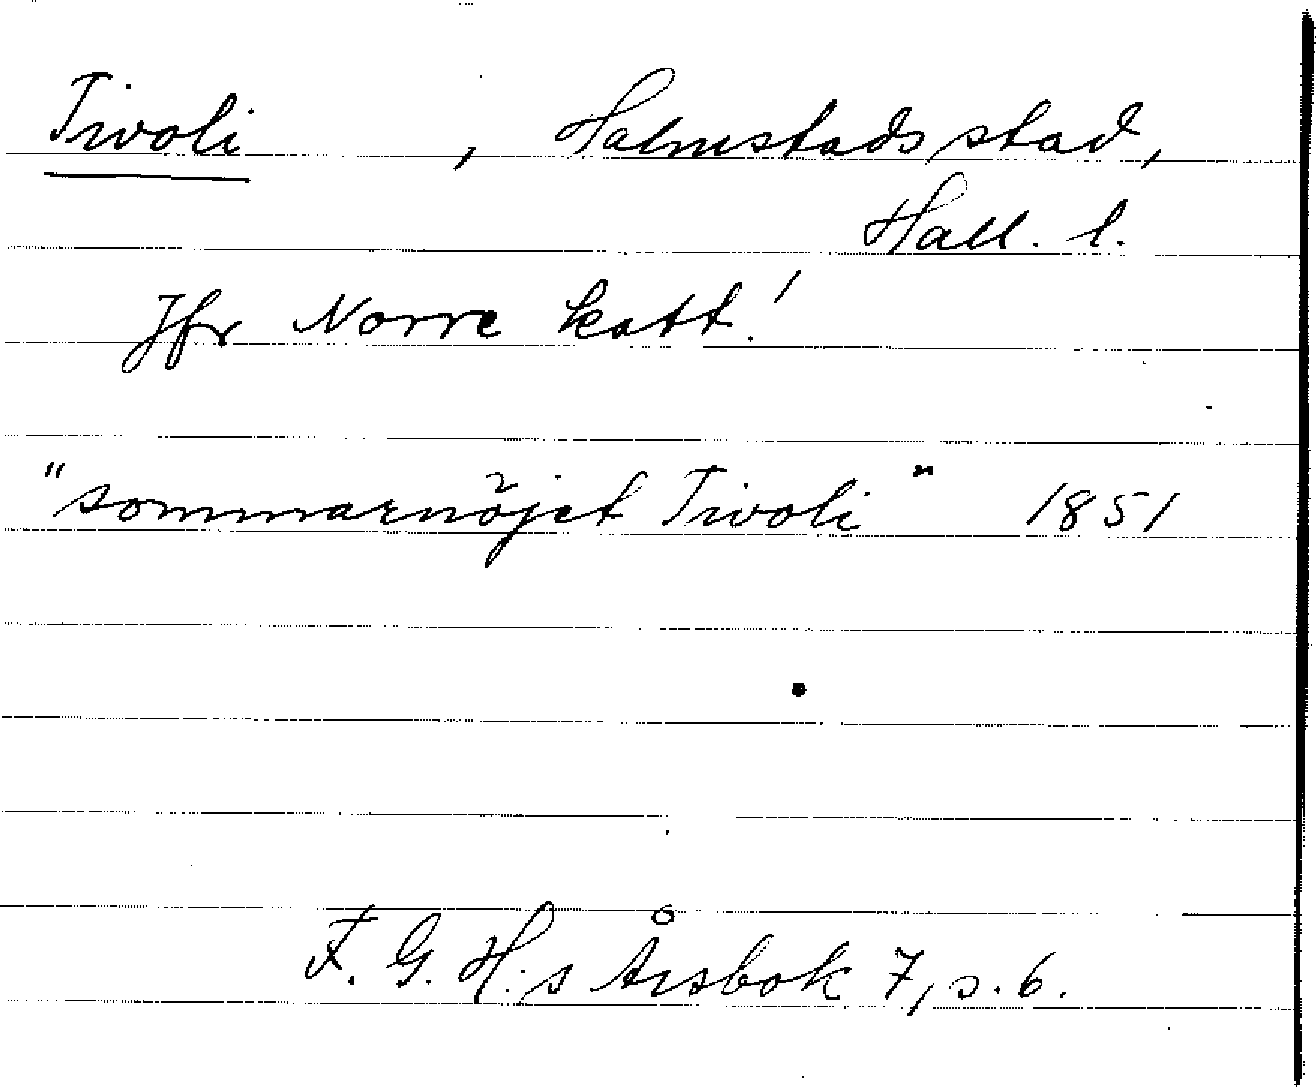 Tivoli , Halmstads stad,
Hall. l.
Jfr Norre katt!
"sommarnöjet Tivoli" 1851
F. G. H:s Årsbok 7, s. 6.